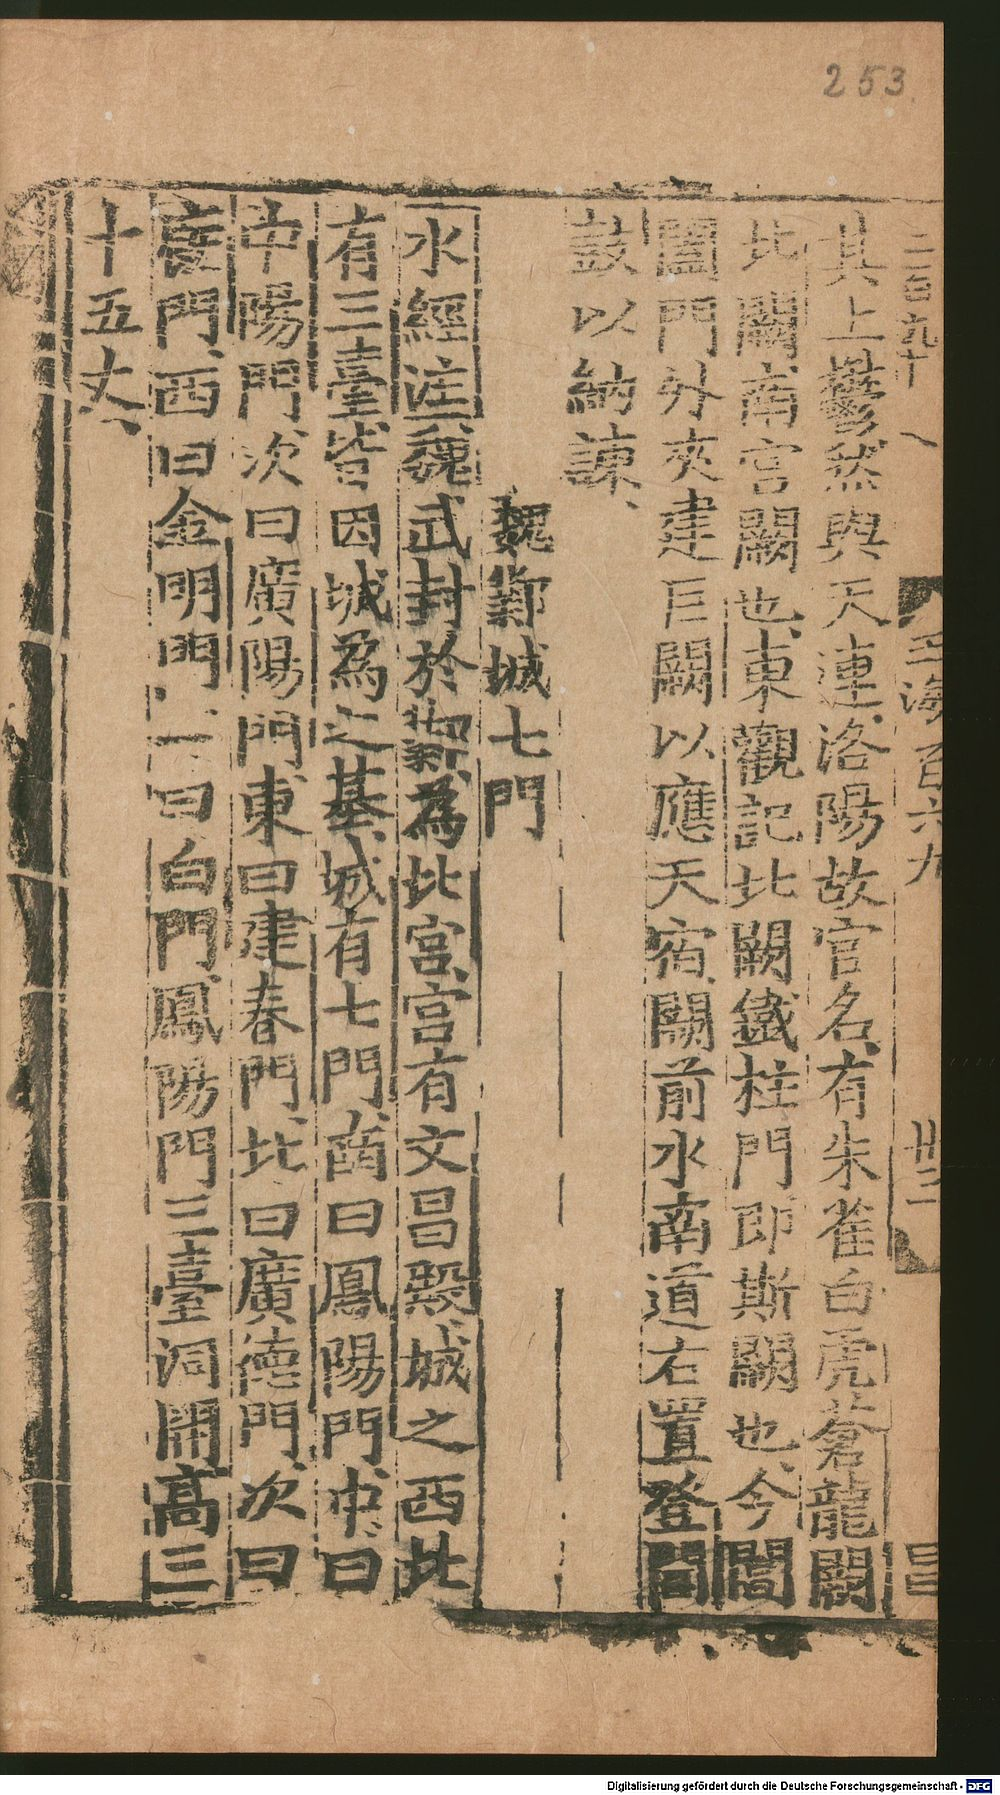 253
二百九十
玉海百六九
廿三
其上鬱然與天連洛陽故宮名有朱雀白虎蒼龍闕
北闕南宮闕也東觀記北闕鐵柱門即斯闕也今閶
闔門外夾建巨闕以應天宿闕前水南道右置登聞
鼓以納諫
魏鄴城七門
水經注魏武封於鄴為北宮宮有文昌殿城之西北
有三臺皆因城為之基城有七門南曰鳳陽門中曰
中陽門次曰廣陽門東曰建春門北曰廣德門次曰
廄門西曰金明門一曰白門鳳陽門三臺洞開高三
十五丈
Digitalisierung gefördert durch die Deutsche Forschungsgemeinschaft - DFG